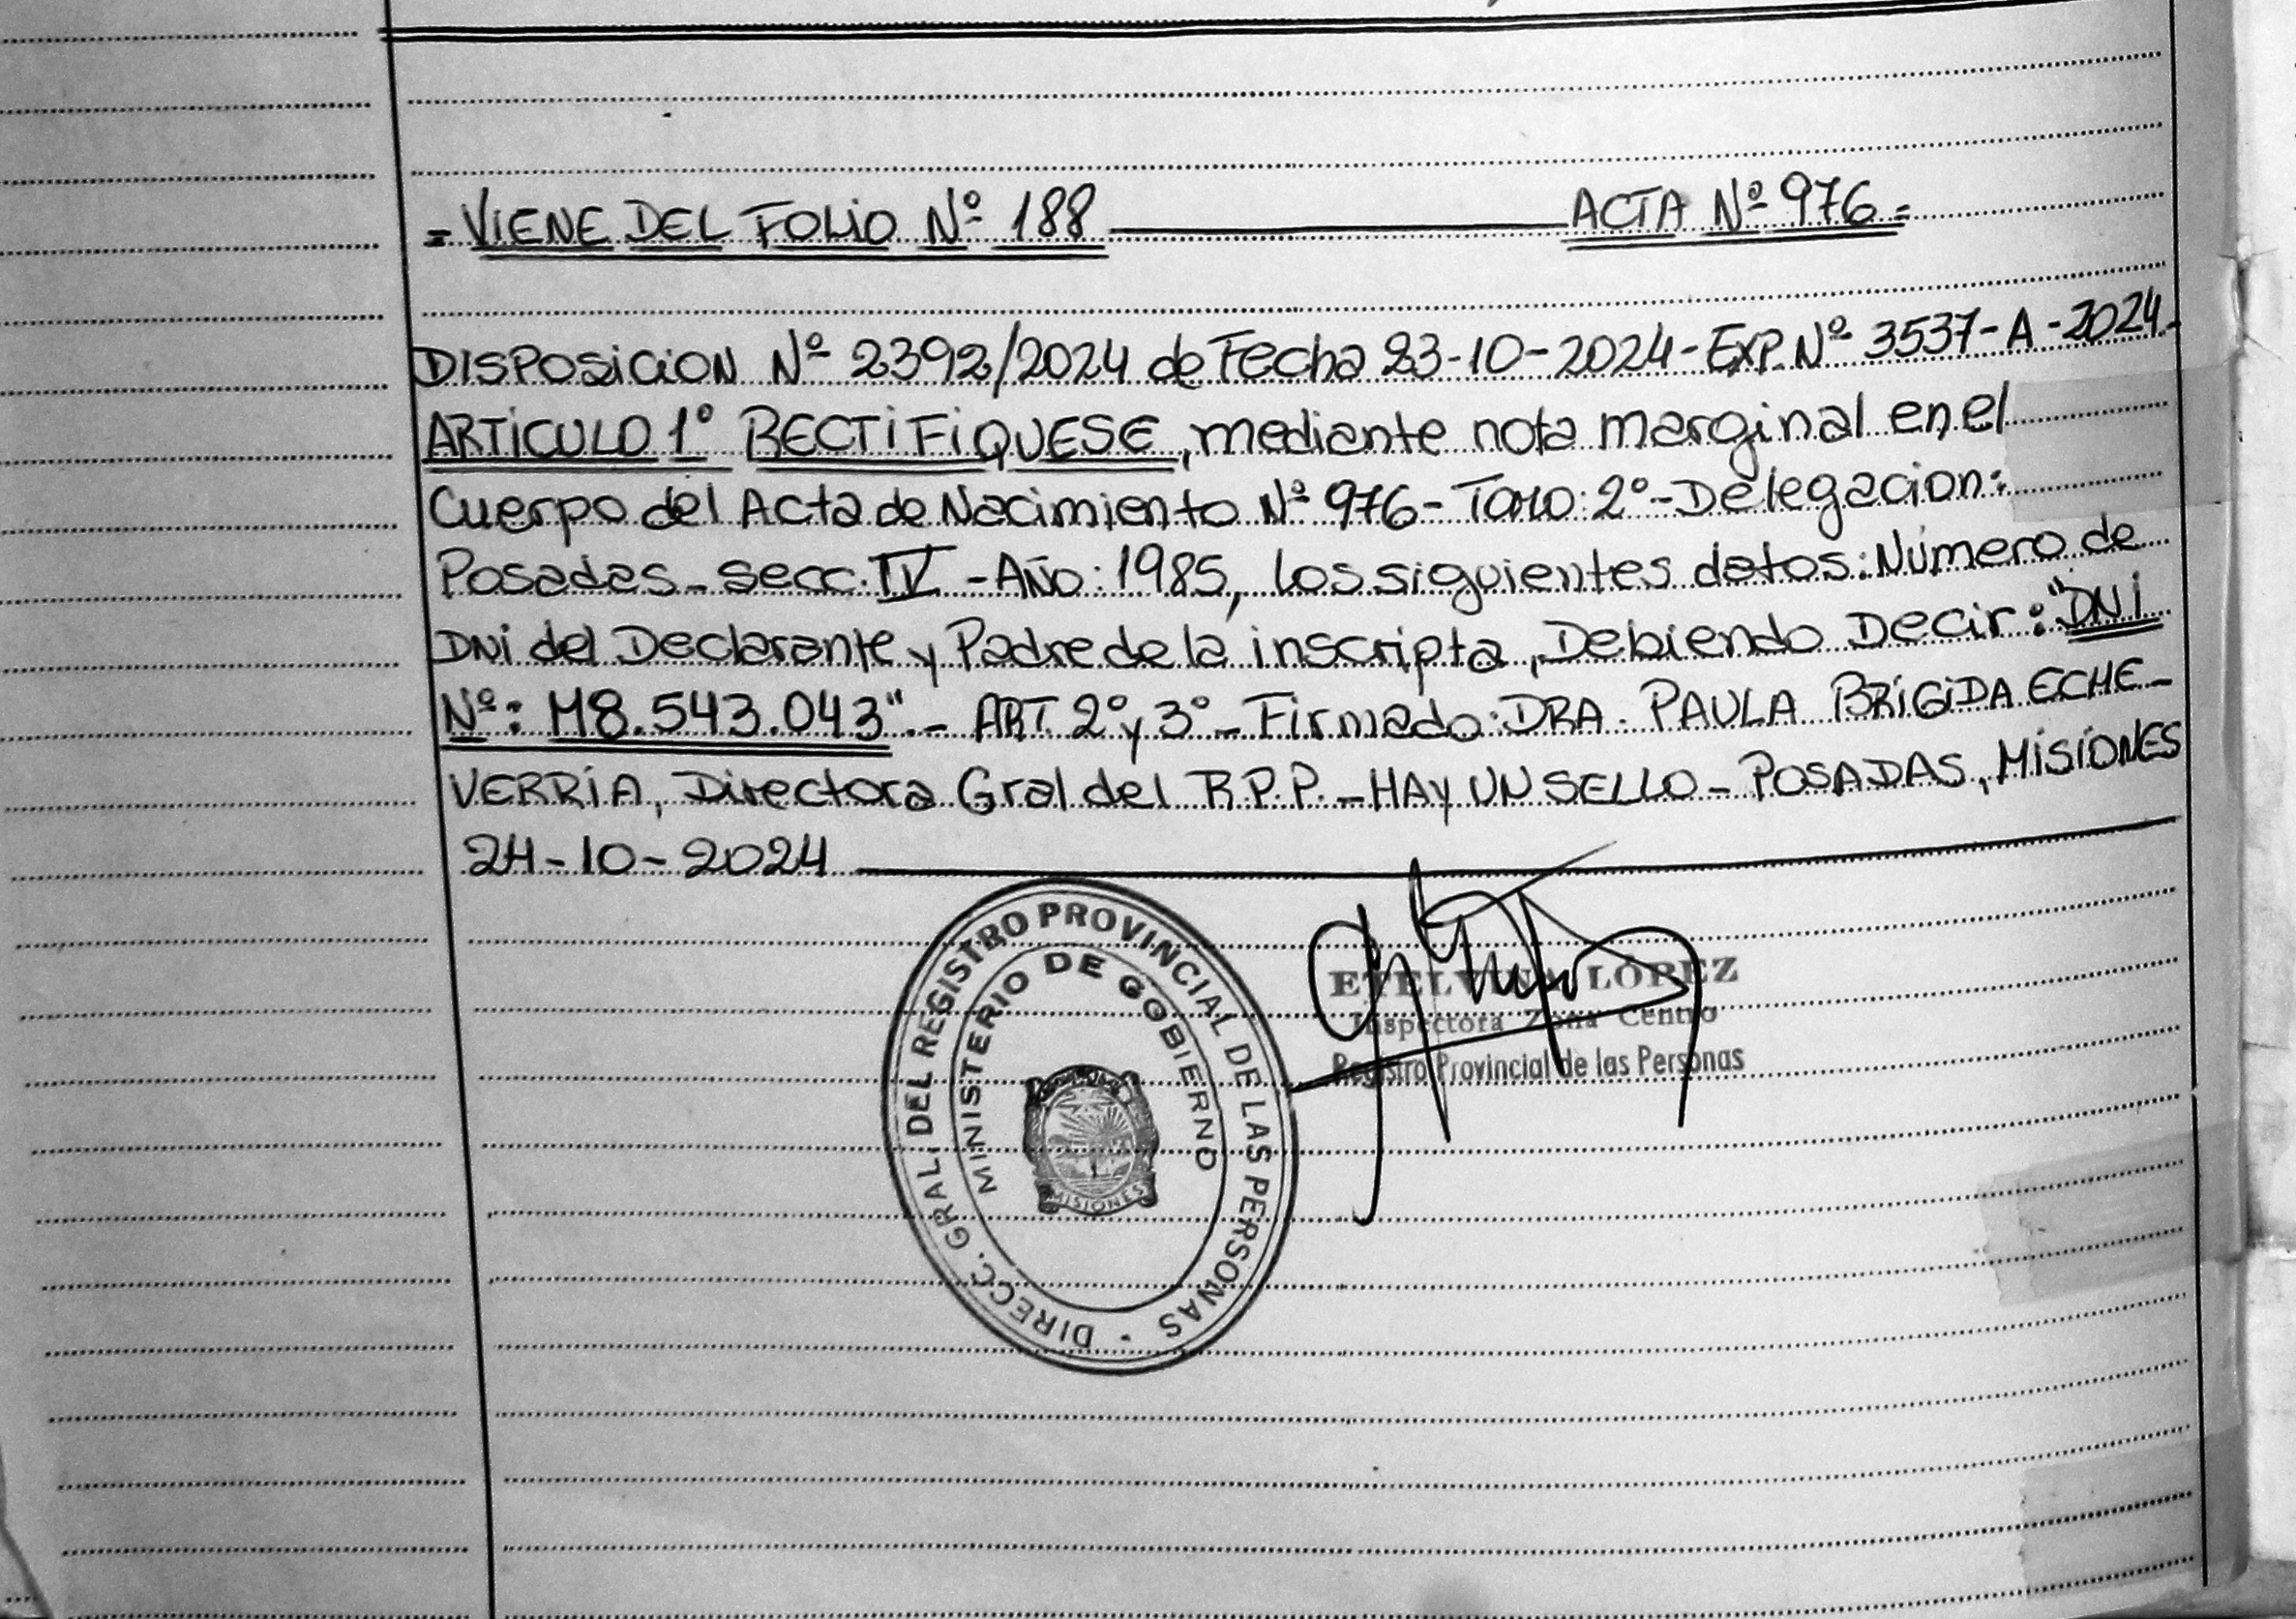 = VIENE DEL FOLIO Nº 188 ACTA Nº 976 =
DISPOSICION Nº 2392/2024 de Fecha 23-10-2024-EXP. Nº 3537-A-2024.
ARTÍCULO 1º RECTIFIQUESE, mediante nota marginal en el
Cuerpo del Acta de Nacimiento Nº 976- Tomo: 2º-Delegacion:
Posadas-Secc. IV -AÑO: 1985, Los siguientes datos: Número de
DNi del Declarante y Padre de la inscripta, Debiendo Decir: "DNi
Nº: M8.543.043".- ART. 2º y 3º- Firmado: DRA. PAULA BRÍGIDA ECHE-
VERRÍA, Directora Gral del R.P.P. -HAY UN SELLO- POSADAS, MISÍONES
24-10-2024
DIRECC. GRAL. DEL REGISTRO PROVINCIAL DE LAS PERSONAS ·
MINISTERIO DE GOBIERNO
MISIONES
ETELVINA LÓPEZ
Inspectora Zona Centro
Registro Provincial de las Personas